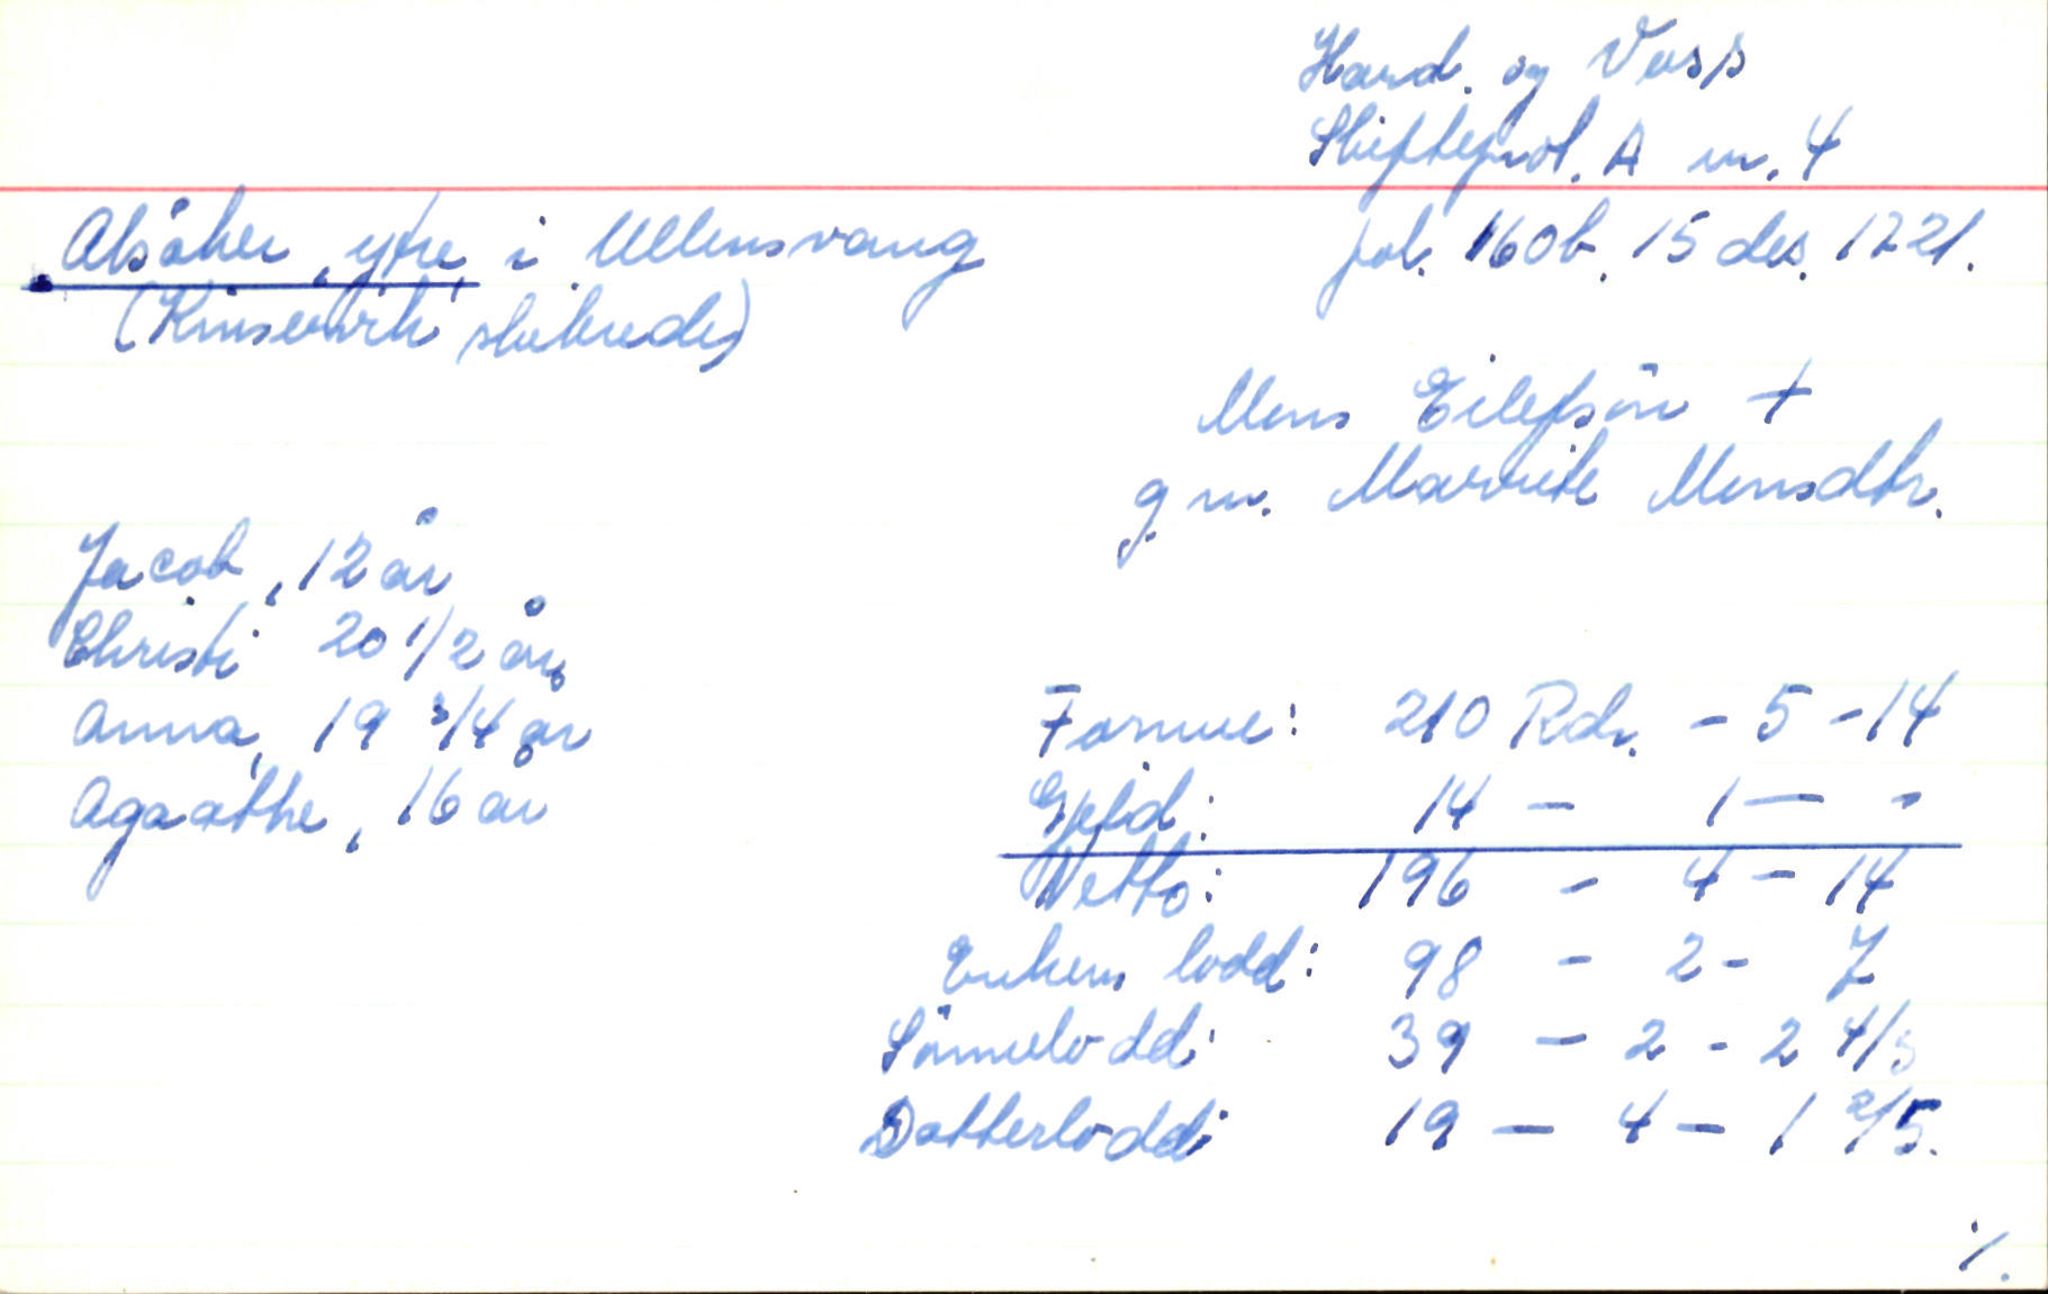 Hard. og Voss
Skifteprot. A nr. 4
fol. 160b. 15 des. 1721.
Alsåker, ytre, i Ullensvang
(Kinservik skibrede)
Mons Eilefsön +
g.m. Marrite Monsdtr.
Jacob, 12 år
Christi 20 1/2 år
Anna, 19 3/4 år
Agaathe, 16 år
Formue: 210 Rdr. - 5 - 14
Gjeld: 14 - 1 - -
Netto: 196 - 4 - 14
Enkens lodd: 98 - 2 - 7
Sönnelodd: 39 - 2 - 2 4/5
Datterlodd: 19 - 4 - 1 2/5.
·/.